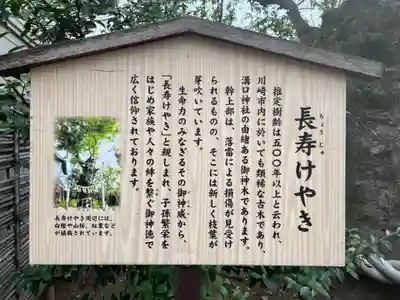 長寿けやき
ちょうじゅ
推定樹齢は五〇〇年以上と云われ、
川崎市内に於いても類稀な古木であり、
溝口神社の由緒ある御神木であります。
幹上部は、落雷による損傷が見受け
られるものの、そこには新しく枝葉が
芽吹いています。
生命力のみなぎるその御神威から、
「長寿けやき」と親しまれ、子孫繁栄を
はじめ家族や人々の絆を繋ぐ御神徳で
広く信仰されております。
長寿けやき周辺には、
白樫や山椿、紅葉などが
植栽されています。